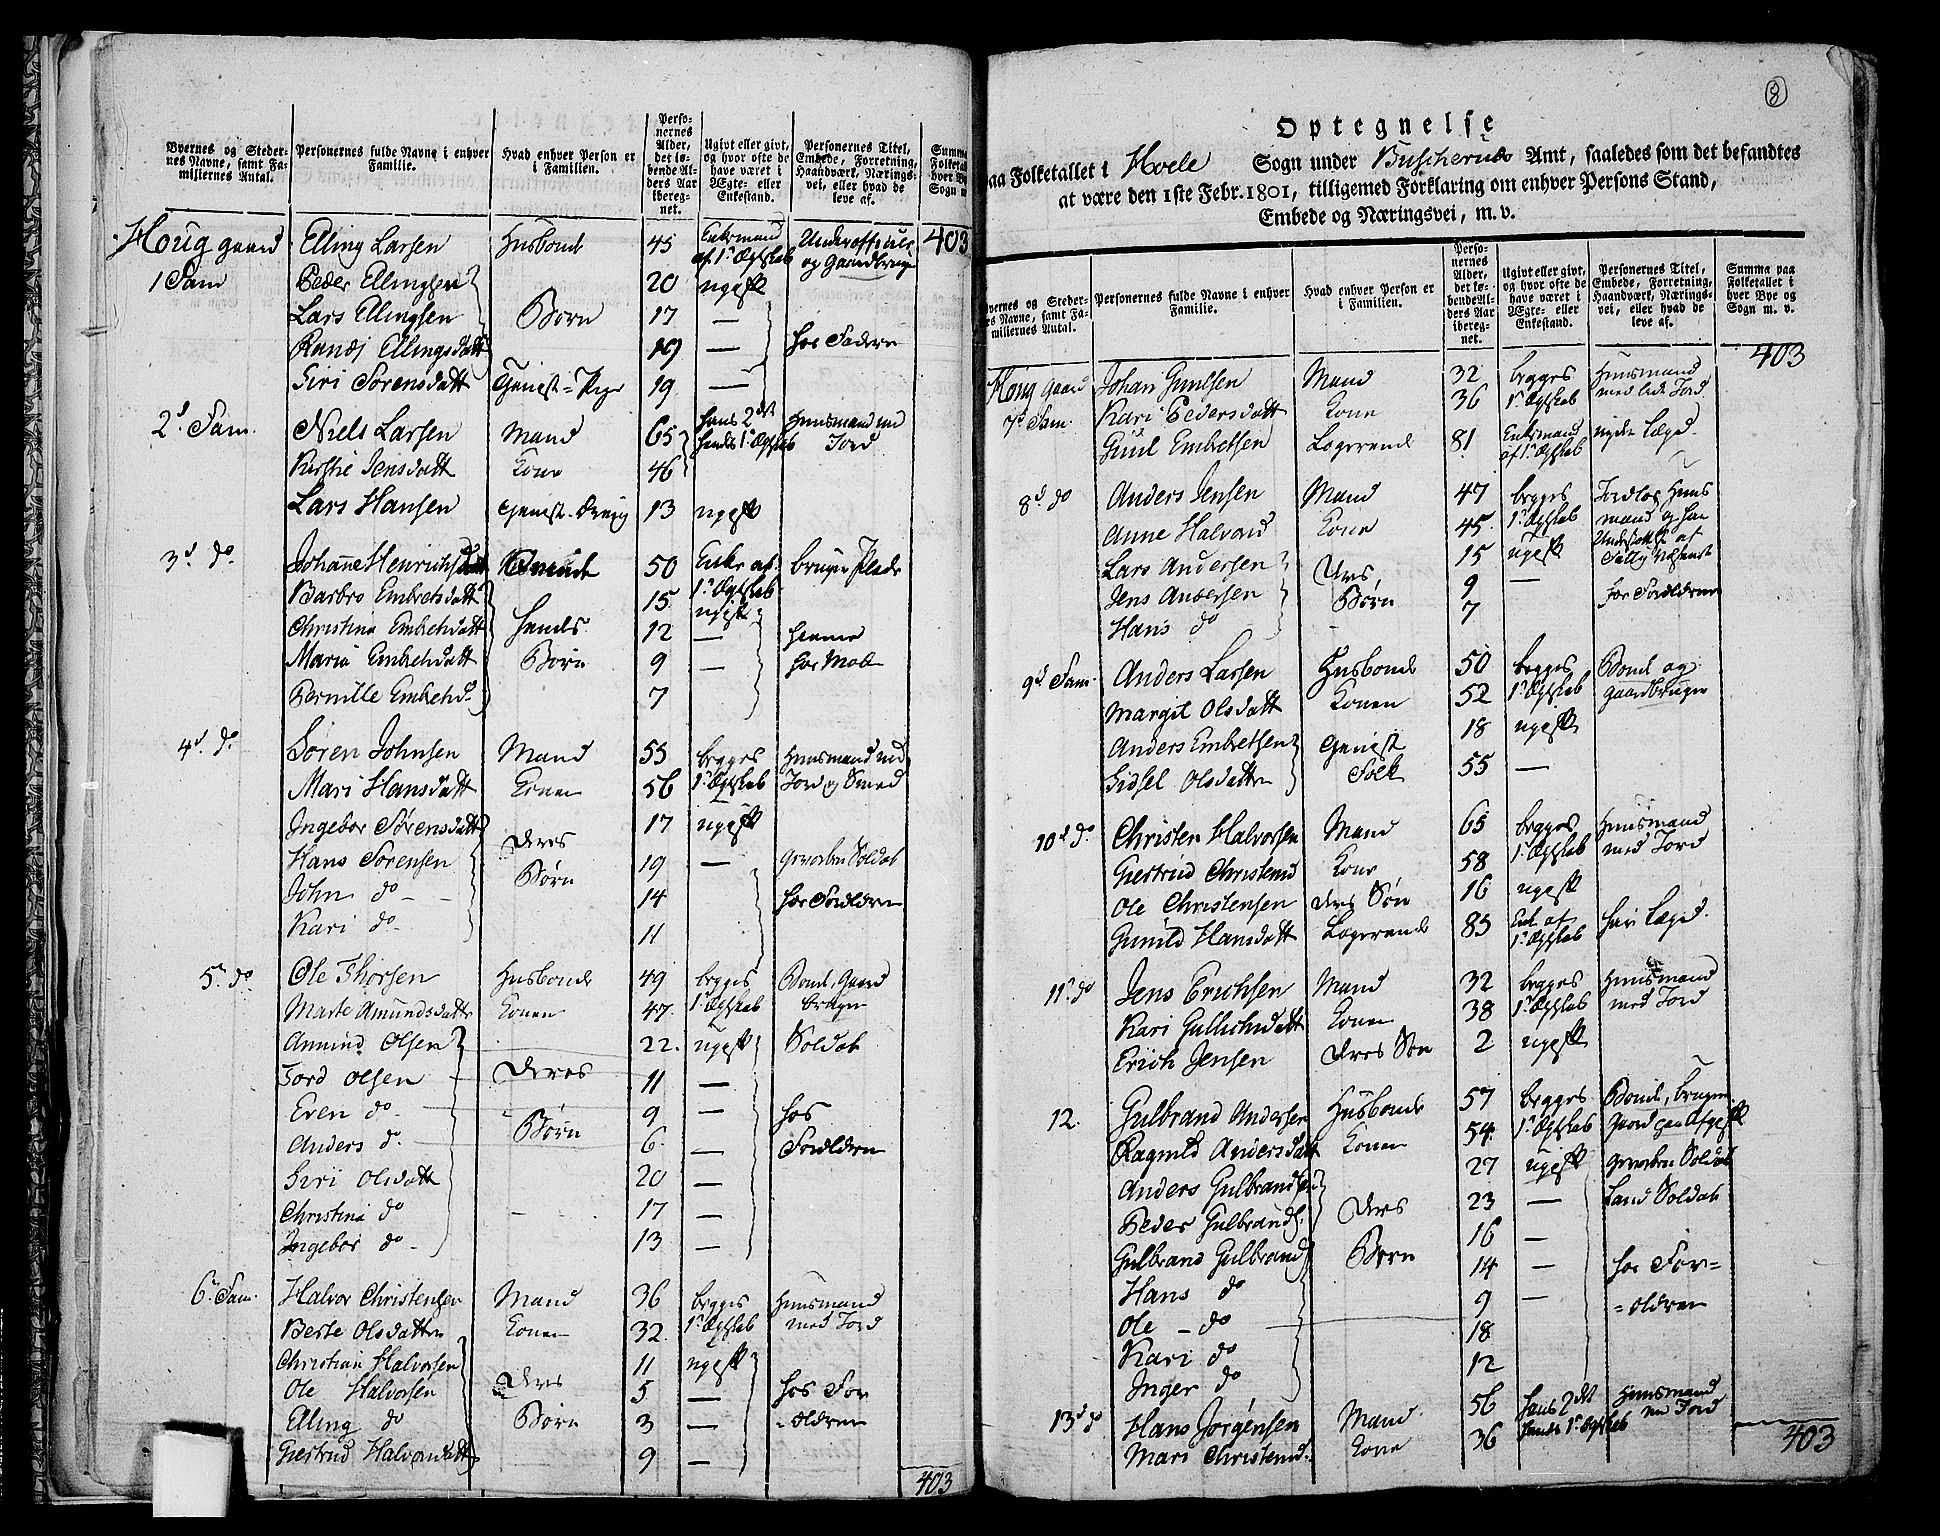 Byernes og Steder-
nes Navne, samt Fa-
miliernes Antal.
Personernes fulde Navne i enhver
Familie.
Hvad enhver Person er
i Familien.
Perso-
nernes
Alder,
det lø-
bende Al-
ders Aar
iberegnet.
Ugivt eller givt,
og hvor ofte de
have været i
Ægte- eller
Enkestand.
Personernes Titel,
Embede, Forretning,
Haandværk, Nærings-
vei, eller hvad de
leve af.
Summa
Folketal
hver By
Sogn m.
Houg gaard Elling Larsen Husbonde 45 Enkemand af 1ste Ægtskab Underofficeer og Gaardbruger 403
1 Fam Peder Ellingsen 20 ugift
Lars Ellingsen Børn 17 —
Ellingsdatt 19 — hos Faderen
Siri Sørensdatt Tieniste-Pige 19 —
2d Fam. Niels Larsen Mand 65 hans 2det hendes 1ste Ægtskab Huusmand med Jord
Kirstie Jensdatt Kone 46
Lars Hansen Tieniste-Dreng 13 ugift
3d do Johanne Henrichsdatt 50 Enke af 1ste Ægtskab bruger Plads
Barbro Embretsdatt 15 ugift
Christina Embretsdatt hendes 12 — hiemme
Maria Embretsdatt Børn 9 — hos Mod
Pernille Embretsd. 7
4d do Søren Johnsen Mand 55 begges 1ste Ægtskab Huusmand med Jord og Smed
Mari Hansdatt Konen 56
Ingebor Sørensdatt deres 17 ugift
Hans Sørensen Børn 19 — Gevorben Soldat
John do 14 hos Forældren
Kari do 11
5te do Ole Thorsen Husbonde 49 begges 1ste Ægtskab Bonde, Gaard bruger
Marte Amundsdatter Konen 47.
Amund Olsen 22. ugift Soldat
Tord Olsen deres 11 —
Even do 9 — hos
Anders do Børn 6. — Forældren
Siri Olsdatt 20 —
Christina do 17 —
Ingebor do 13 —
6te Fam. Halvor Christensen Mand 36 begges 1ste Ægtskab Huusmand med Jord
Berte Olsdatter Konen 32.
Christian Halvorsen 11 ugift
Ole Halvorsen deres 5 — hos For
Elling do Børn 3 — -ældren
Giertrud Halvorsdatt 9 —
403
8
Optegnelse
paa Folketallet i Hoele Sogn under Buscheruds Amt, saaledes som det befandtes
at være den 1ste Febr. 1801, tilligemed Forklaring om enhver Persons Stand,
Embede og Næringsvei, m. v.
Byernes og Steder-
nes Navne, samt Fa-
miliernes Antal.
Personernes fulde Navne i enhver
Familie.
Hvad enhver Person er
i Familien.
Perso-
nernes
Alder,
det lø-
bende Al-
ders Aar
iberegnet.
Ugivt eller givt,
og hvor ofte de
have været i
Ægte- eller
Enkestand.
Personernes Titel,
Embede, Forretning,
Haandværk, Nærings-
vei, eller hvad de
leve af.
Summa paa
Folketallet i
hver Bye og
Sogn m. v.
403
Houg gaard Johan Gulesen Mand 32 begges 1ste Ægtskab Huusmand med Jord
7de Fam. Kari Pedersdatt Kone 36
Guul Embretsen Logerende 81 Enkemand af 1ste Ægtskab nyder Lægd.
8d do Anders Jensen Mand 47 begges 1ste Ægtskab Jordløs Huusmand og har
Anne Halvord Kone 45. Understøttelse af
Lars Andersen deres 15 ugift
Jens Andersen Børn 9 — hos Forældrene
Hans do 7
9d Fam. Anders Larsen Husbonde 50 begges 1ste Ægtskab Bonde og Gaardbruger
Margit Olsdatt Konen 52
Anders Embretsen Tieniste 18 ugift
Sidsel Olsdatter Folk 55 —
10d do Christen Halvorsen Mand 65 begges 1ste Ægtskab Huusmand med Jord
Giertrud Christensd Kone 58
Ole Christensen deres Søn 16 ugift
Gunild Hansdatt Logerende 85 Enke af 1ste Ægtskab har Lægd.
11te do Jens Erichsen Mand 32 begges 1ste Ægtskab Huusmand med Jord
Kari Gullichsdatt Konen 38
Erich Jensen deres Søn 2 ugift
12. Gulbrand Andersen Husbonde 57 begges 1ste Ægtskab Bonde, bruger Gaard paa Afgift
Ragnild Andersdatt Konen 54.
Anders Gulbrandsen 27 ugift Gevorben Soldat
Peder Gulbrands. deres 23 — Land Soldat
Gulbrand Gulbrands Børn 16 —
Hans do 14 — hos For=
Ole do 9 — =ældren
Kari do 18
Inger do 12
13d do Hans Jørgensen Mand 56 hans 2det hendes 1ste Ægtskab Huusmand med Jord
Mari Christensd. Kone 36
403